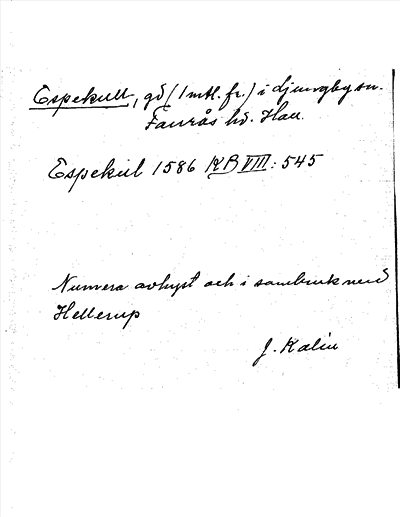 Espekull, gd (1 mtl. fr.) i Ljungby sn.
Faurås hd. Hall.
Espekul 1586 KB VIII: 545
Numera avhyst och i sambruk med
Hellerup
J. Kalin